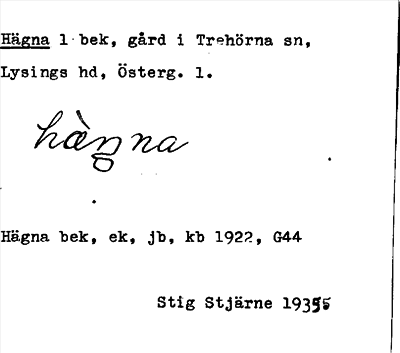 Hägna l bek, gård i Trehörna sn,
Lysings hd, Österg. l.
hàgna
Hägna bek, ek, jb, kb 1922, G44
Stig Stjärne 1935